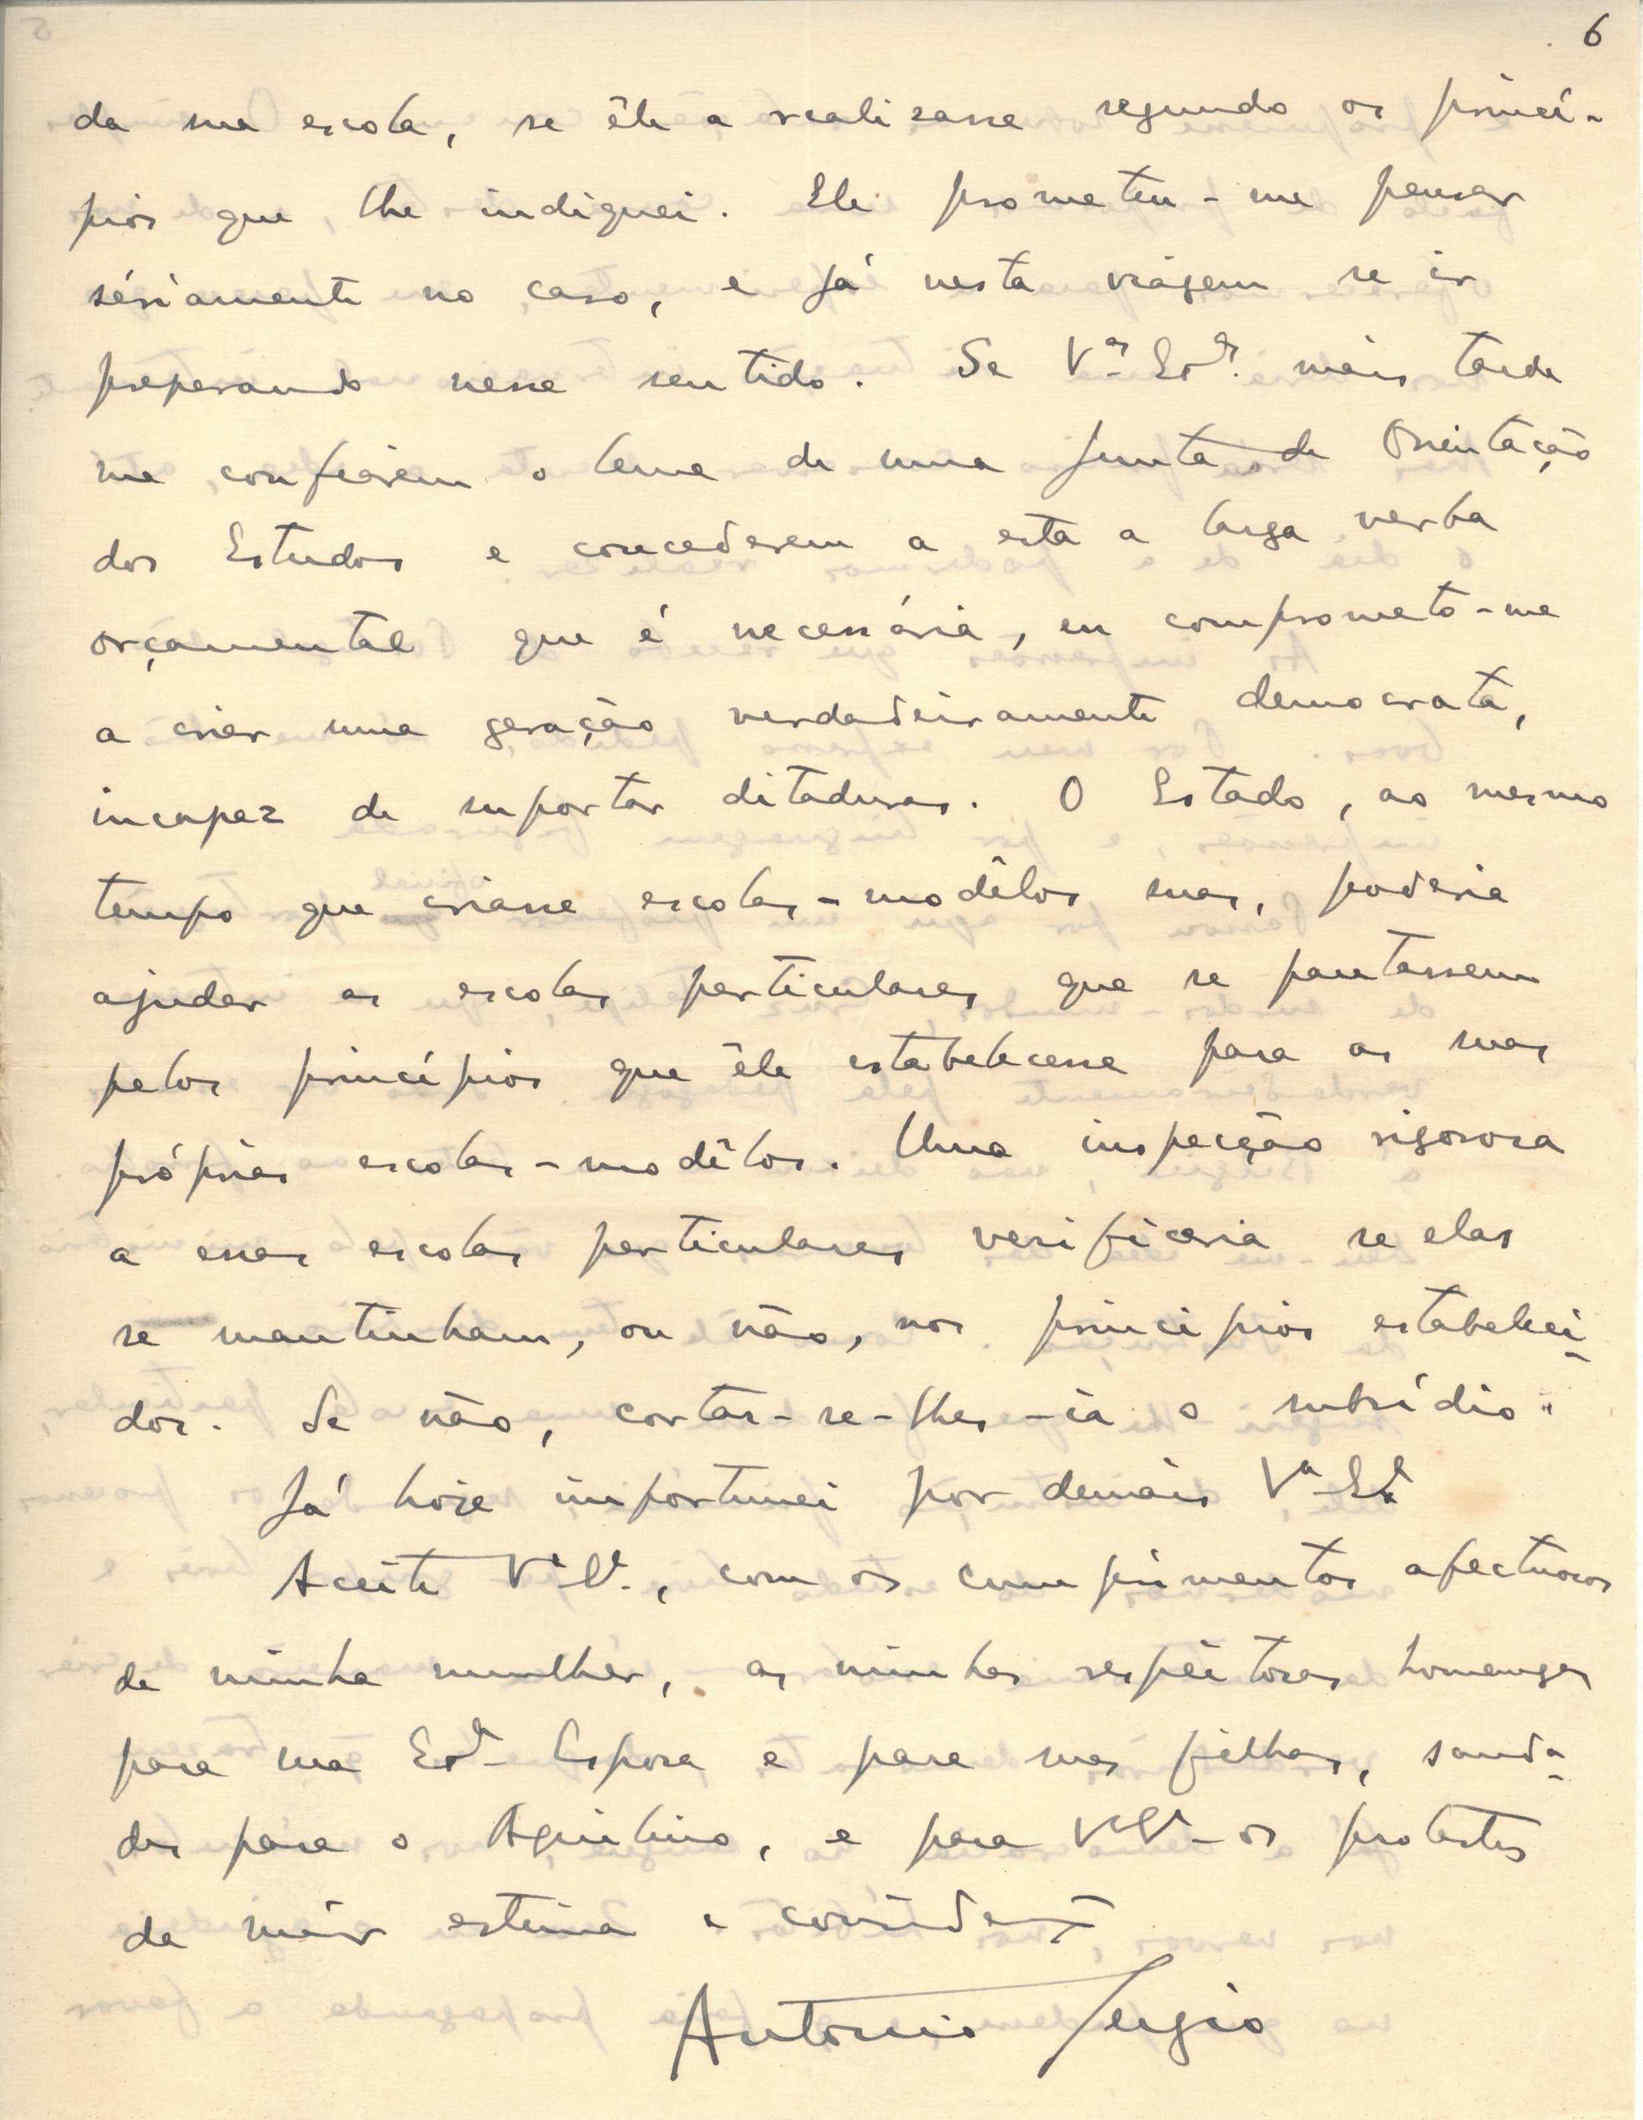 6
da sua escola, se êle a realisasse segundo os princí-
pios que lhe indiquei. Ele prometeu-me pensar
sériamente no caso, e já nesta viagem se ir
preparando nesse sentido. Se V.as Ex.as mais tarde
me confiarem o leme de uma Junta de Orientação
dos Estudos e concederem a esta a larga verba
orçamental que é necessária, eu comprometo-me
a criar uma geração verdadeiramente democrata,
incapaz de suportar ditaduras. O Estado, ao mesmo
tempo que criasse escolas-modêlos suas, poderia
ajudar as escolas particulares que se pautassem
pelos princípios que êle estabelecesse para as suas
próprias escolas-modêlos. Uma inspecção rigorosa
a essas escolas particulares verificaria se elas
se mantinham, ou não, nos principios estabeleci-
dos. Se não, cortar-se-lhes-ia o subsídio.
Já hoje importunei por demais V.a Ex.a
Aceite V.a Ex.a, com os cumprimentos afectuosos
de minha mulher, as minhas respeitosas homenagens
para sua Ex.ma Esposa e para suas filhas, sauda-
des para o Agentino, e para V.a Ex.a os protestos
da maior estima e consideração
Antonio Sergio